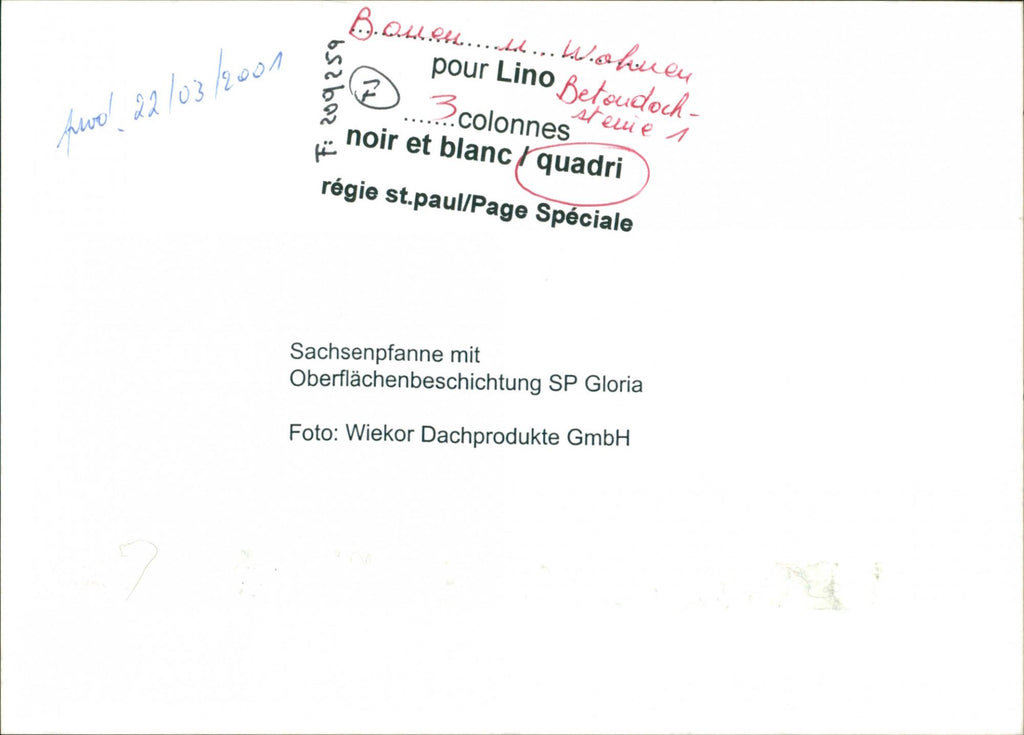 Bauen u Wohnen
prod. 22/03/2001
F: 209259
pour Lino
Betondach-
steine 1
3 colonnes
noir et blanc / quadri
régie st.paul/Page Spéciale
Sachsenpfanne mit
Oberflächenbeschichtung SP Gloria
Foto: Wiekor Dachprodukte GmbH